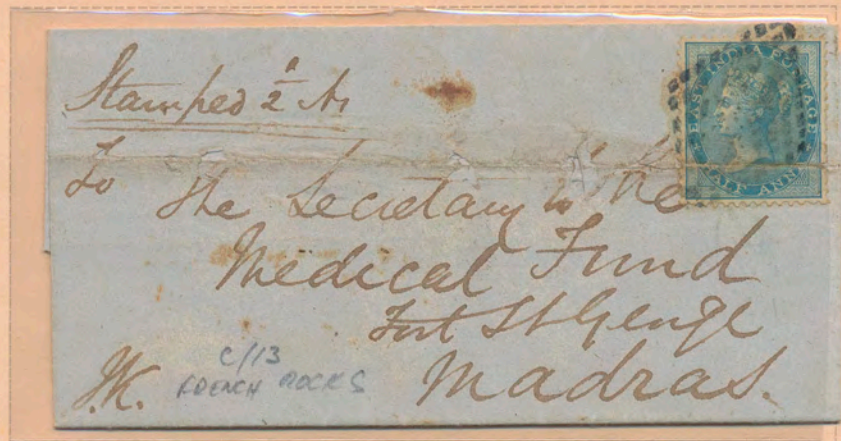 Stamped ½ A
EAST INDIA POSTAGE
HALF ANNA
To
The Secretary to the
Medical Fund
Fort St George
Madras.
C/13
FRENCH ROCKS